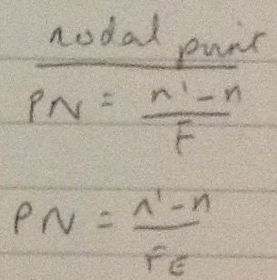 nodal point
PN = n' - n / F
PN = n' - n / FE